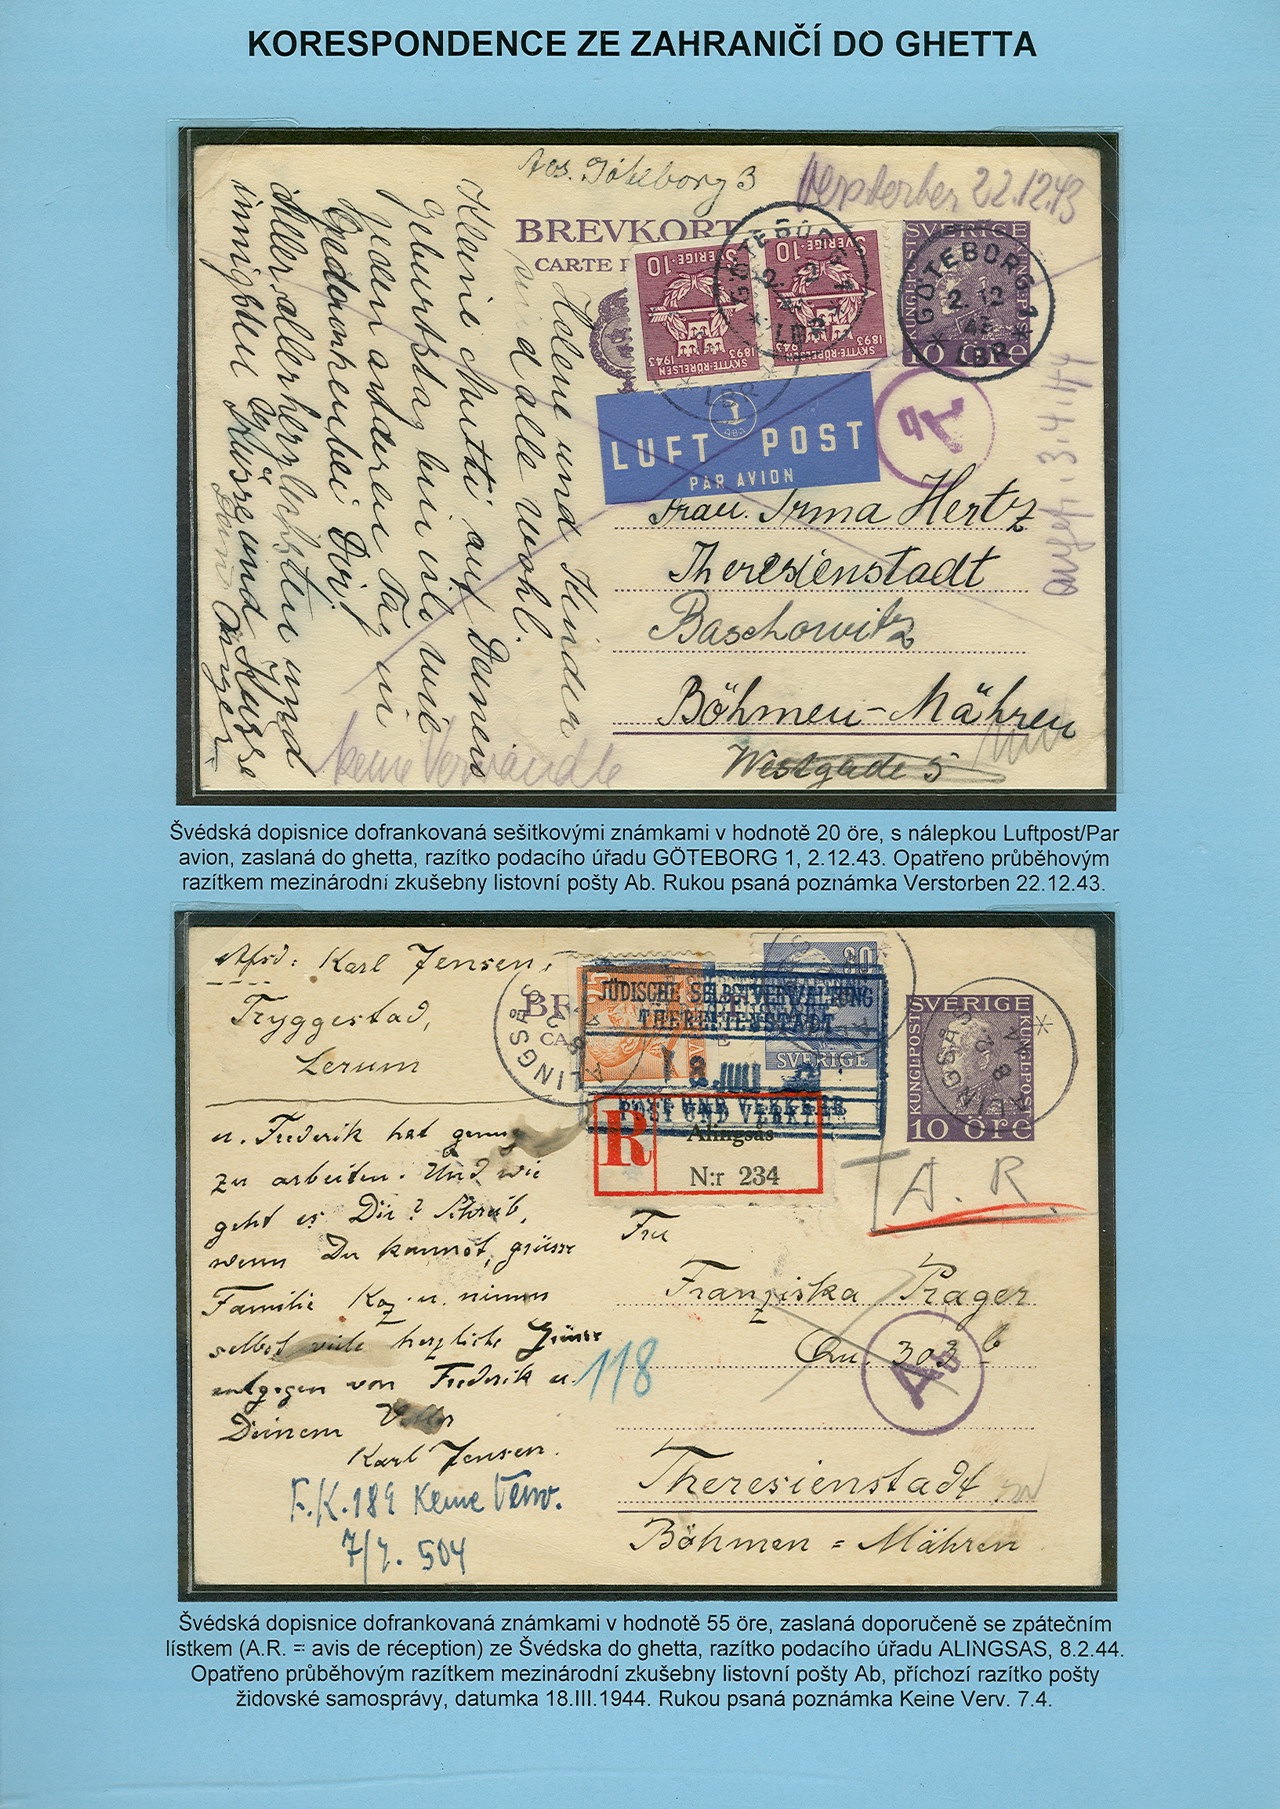 KORESPONDENCE ZE ZAHRANIČÍ DO GHETTA
Abs. Göteborg 3
Verstorben 22.12.43
BREVKORT
CARTE P
SVERIGE 10
SKYTTE-RÖRELSEN
1893 1943
SVERIGE 10
SKYTTE-RÖRELSEN
1893 1943
GÖTEBORG 1
LBR
SVERIGE
KUNGL·POST
KUNGL·POST
10 ÖRE
GÖTEBORG 1
2.12
43
LBR
LUFTPOST
PAR AVION
ABA
3.4.44
Frau. Irma Hertz
Theresienstadt
Baschowitz
Böhmen-Mähren
Westgade 5
Helene und Kinder
sind alle wohl.
Kleine Mutti auf Deinem
Geburtstag bin ich wie
jeden anderen Tag in
Gedanken bei Dir,
Aller, allerherzlichsten und
innigsten Grüsse und Küsse
Dein
keine Verwandte
Švédská dopisnice dofrankovaná sešitkovými známkami v hodnotě 20 öre, s nálepkou Luftpost/Par
avion, zaslaná do ghetta, razítko podacího úřadu GÖTEBORG 1, 2.12.43. Opatřeno průběhovým
razítkem mezinárodní zkušebny listovní pošty Ab. Rukou psaná poznámka Verstorben 22.12.43.
Afsd: Karl Jensen,
Tryggestad,
Lerum
u. Frederik hat genug
zu arbeiten. Und wie
geht es Dir? Schreib,
wenn Du kannst, grüsse
Familie Koz u. nimm
selbst viele herzliche Grüsse
entgegen von Frederik u.
Deinem
Karl Jensen.
F.K.189 Keine Verw.
7/4. 504
118
ALINGSÅS
JÜDISCHE SELBSTVERWALTUNG
THERESIENSTADT
POST UND VERKEHR
30
SVERIGE
R
Alingsås
N:r 234
SVERIGE
KUNGL·POST
KUNGL·POST
10 ÖRE
ALINGSÅS
8 2
A.R.
Fru
Franziska Prager
Qu. 303 b
Ab
Theresienstadt
Böhmen = Mähren
Švédská dopisnice dofrankovaná známkami v hodnotě 55 öre, zaslaná doporučeně se zpátečním
lístkem (A.R. = avis de réception) ze Švédska do ghetta, razítko podacího úřadu ALINGSAS, 8.2.44.
Opatřeno průběhovým razítkem mezinárodní zkušebny listovní pošty Ab, příchozí razítko pošty
židovské samosprávy, datumka 18.III.1944. Rukou psaná poznámka Keine Verv. 7.4.